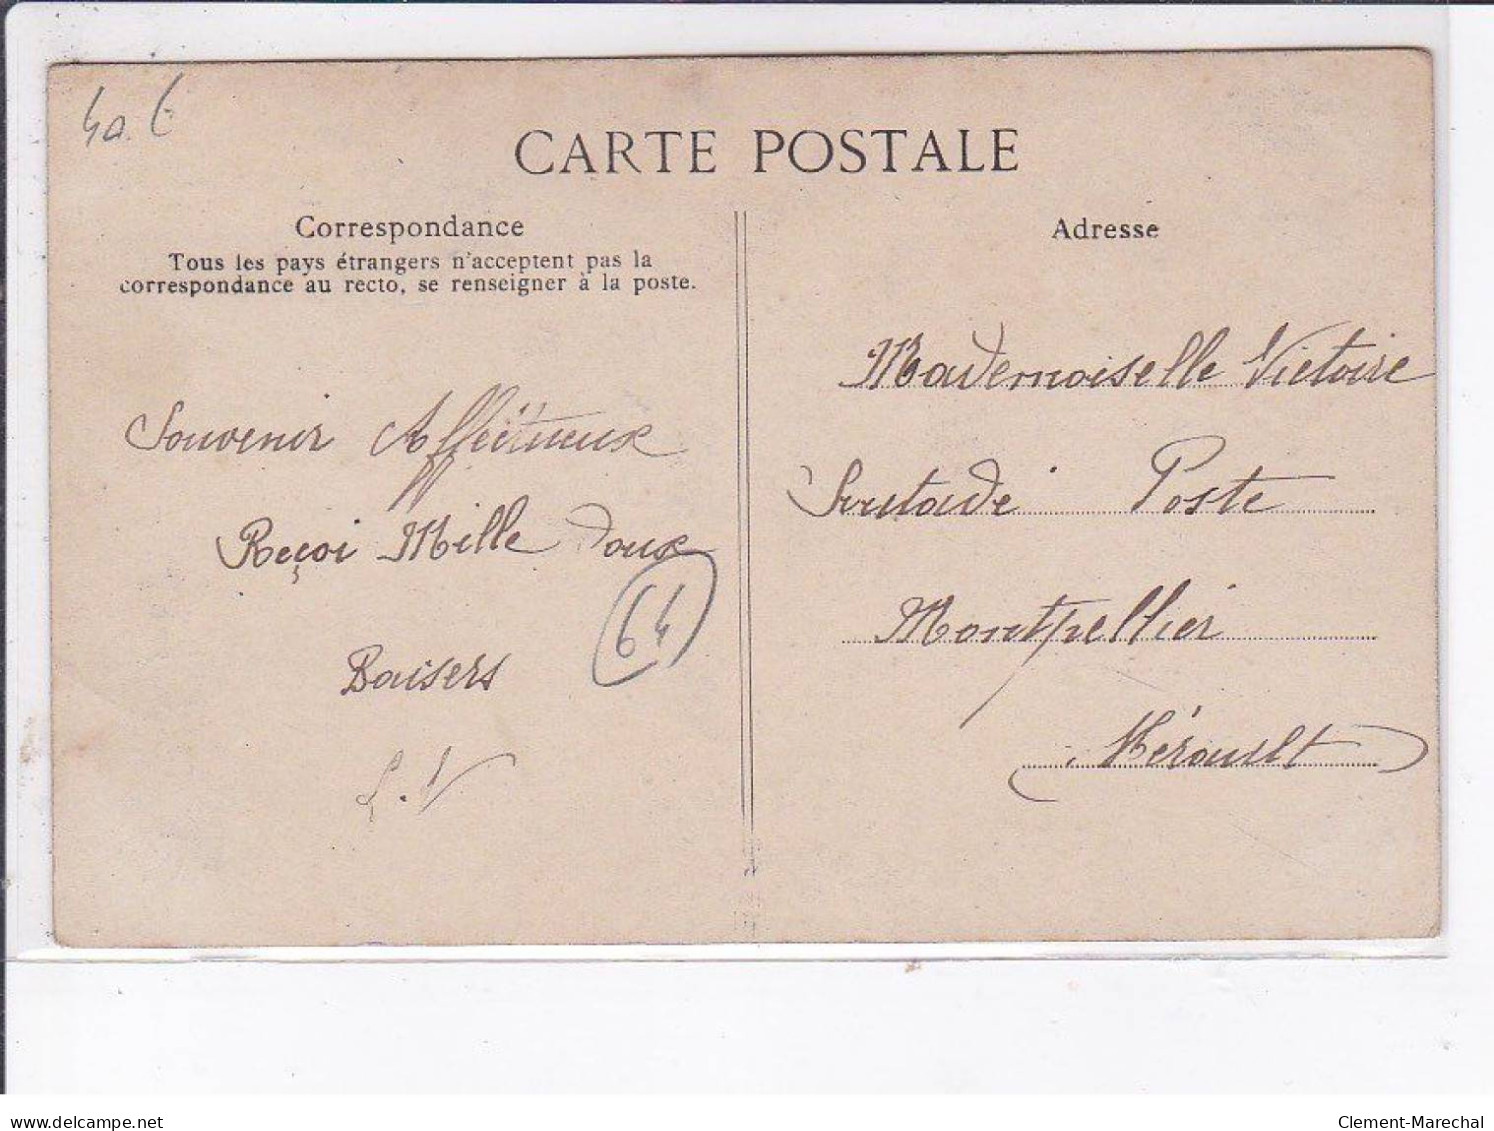 CARTE POSTALE
Correspondance
Tous les pays étrangers n'acceptent pas la
correspondance au recto, se renseigner à la poste.
Souvenir Affectueux
Reçoi Mille Doux
64
Baisers
L. V
Adresse
Mademoiselle Victoire
Poste
Montpellier
Hérault
delcampe.net
Clement-Marechal